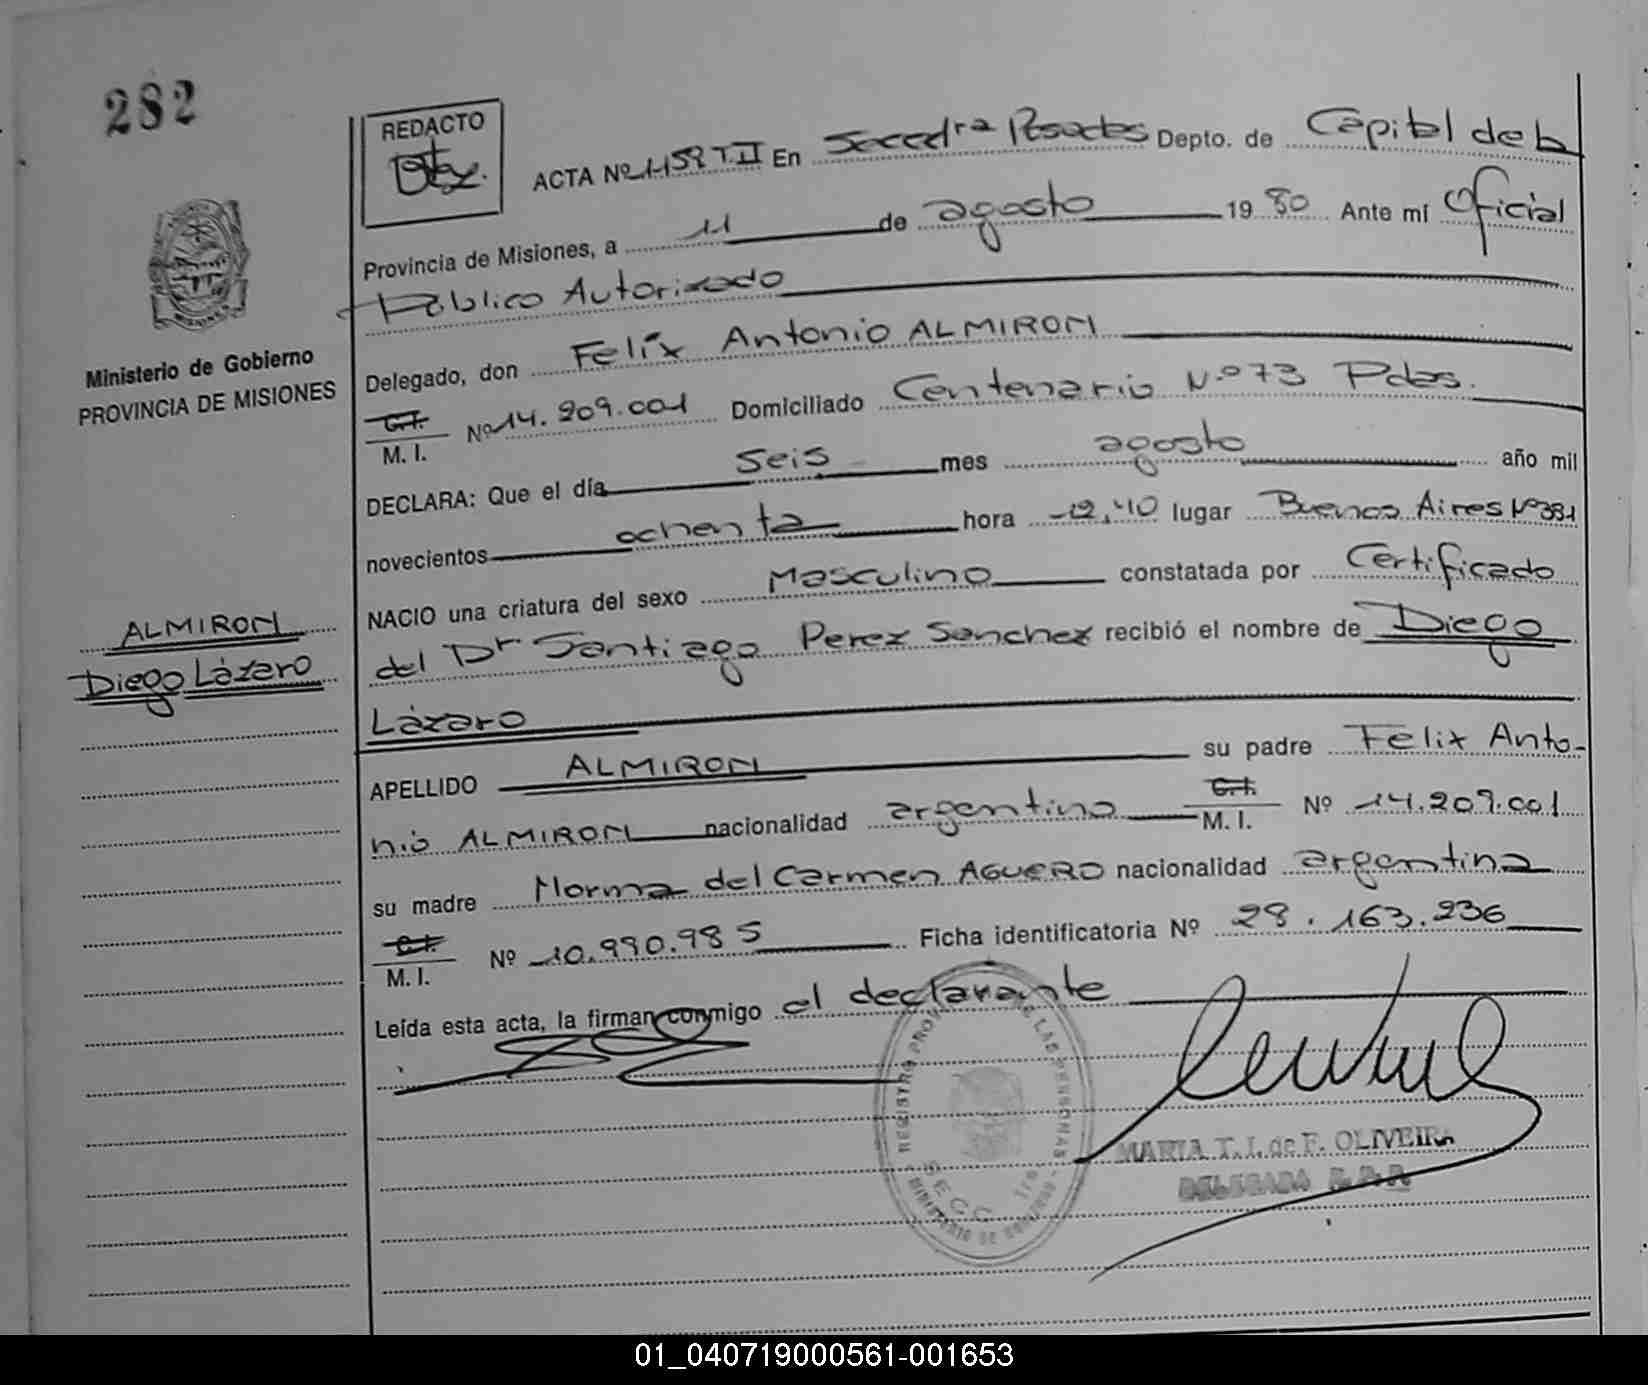 282
REDACTO
ACTA Nº 1159 T.II En Seccdra Posadas Depto. de Capital de la
Provincia de Misiones, a 11 de agosto 1980 Ante mí Oficial
Público Autorizado
Delegado, don Felix Antonio ALMIRON
Ministerio de Gobierno
PROVINCIA DE MISIONES
C.I.
M. I. Nº 14.209.001 Domiciliado Centenario N.º 73 Pdas.
DECLARA: Que el día seis mes agosto año mil
novecientos ochenta hora 12,40 lugar Buenos Aires Nº 381
NACIO una criatura del sexo Masculino constatada por Certificado
ALMIRON
Diego Lázaro
del Dr Santiago Perez Sanchez recibió el nombre de Diego
Lázaro
APELLIDO ALMIRON su padre Felix Anto-
nio ALMIRON nacionalidad argentino C.I. M. I. Nº 14.209.001
su madre Norma del Carmen AGUERO nacionalidad argentina
C.I.
M. I. Nº 10.990.985 Ficha identificatoria Nº 28.163.236
Leída esta acta, la firman conmigo el declarante
MARIA T. I. de F. OLIVEIRA
DELEGADA R.P.P.
01_040719000561-001653